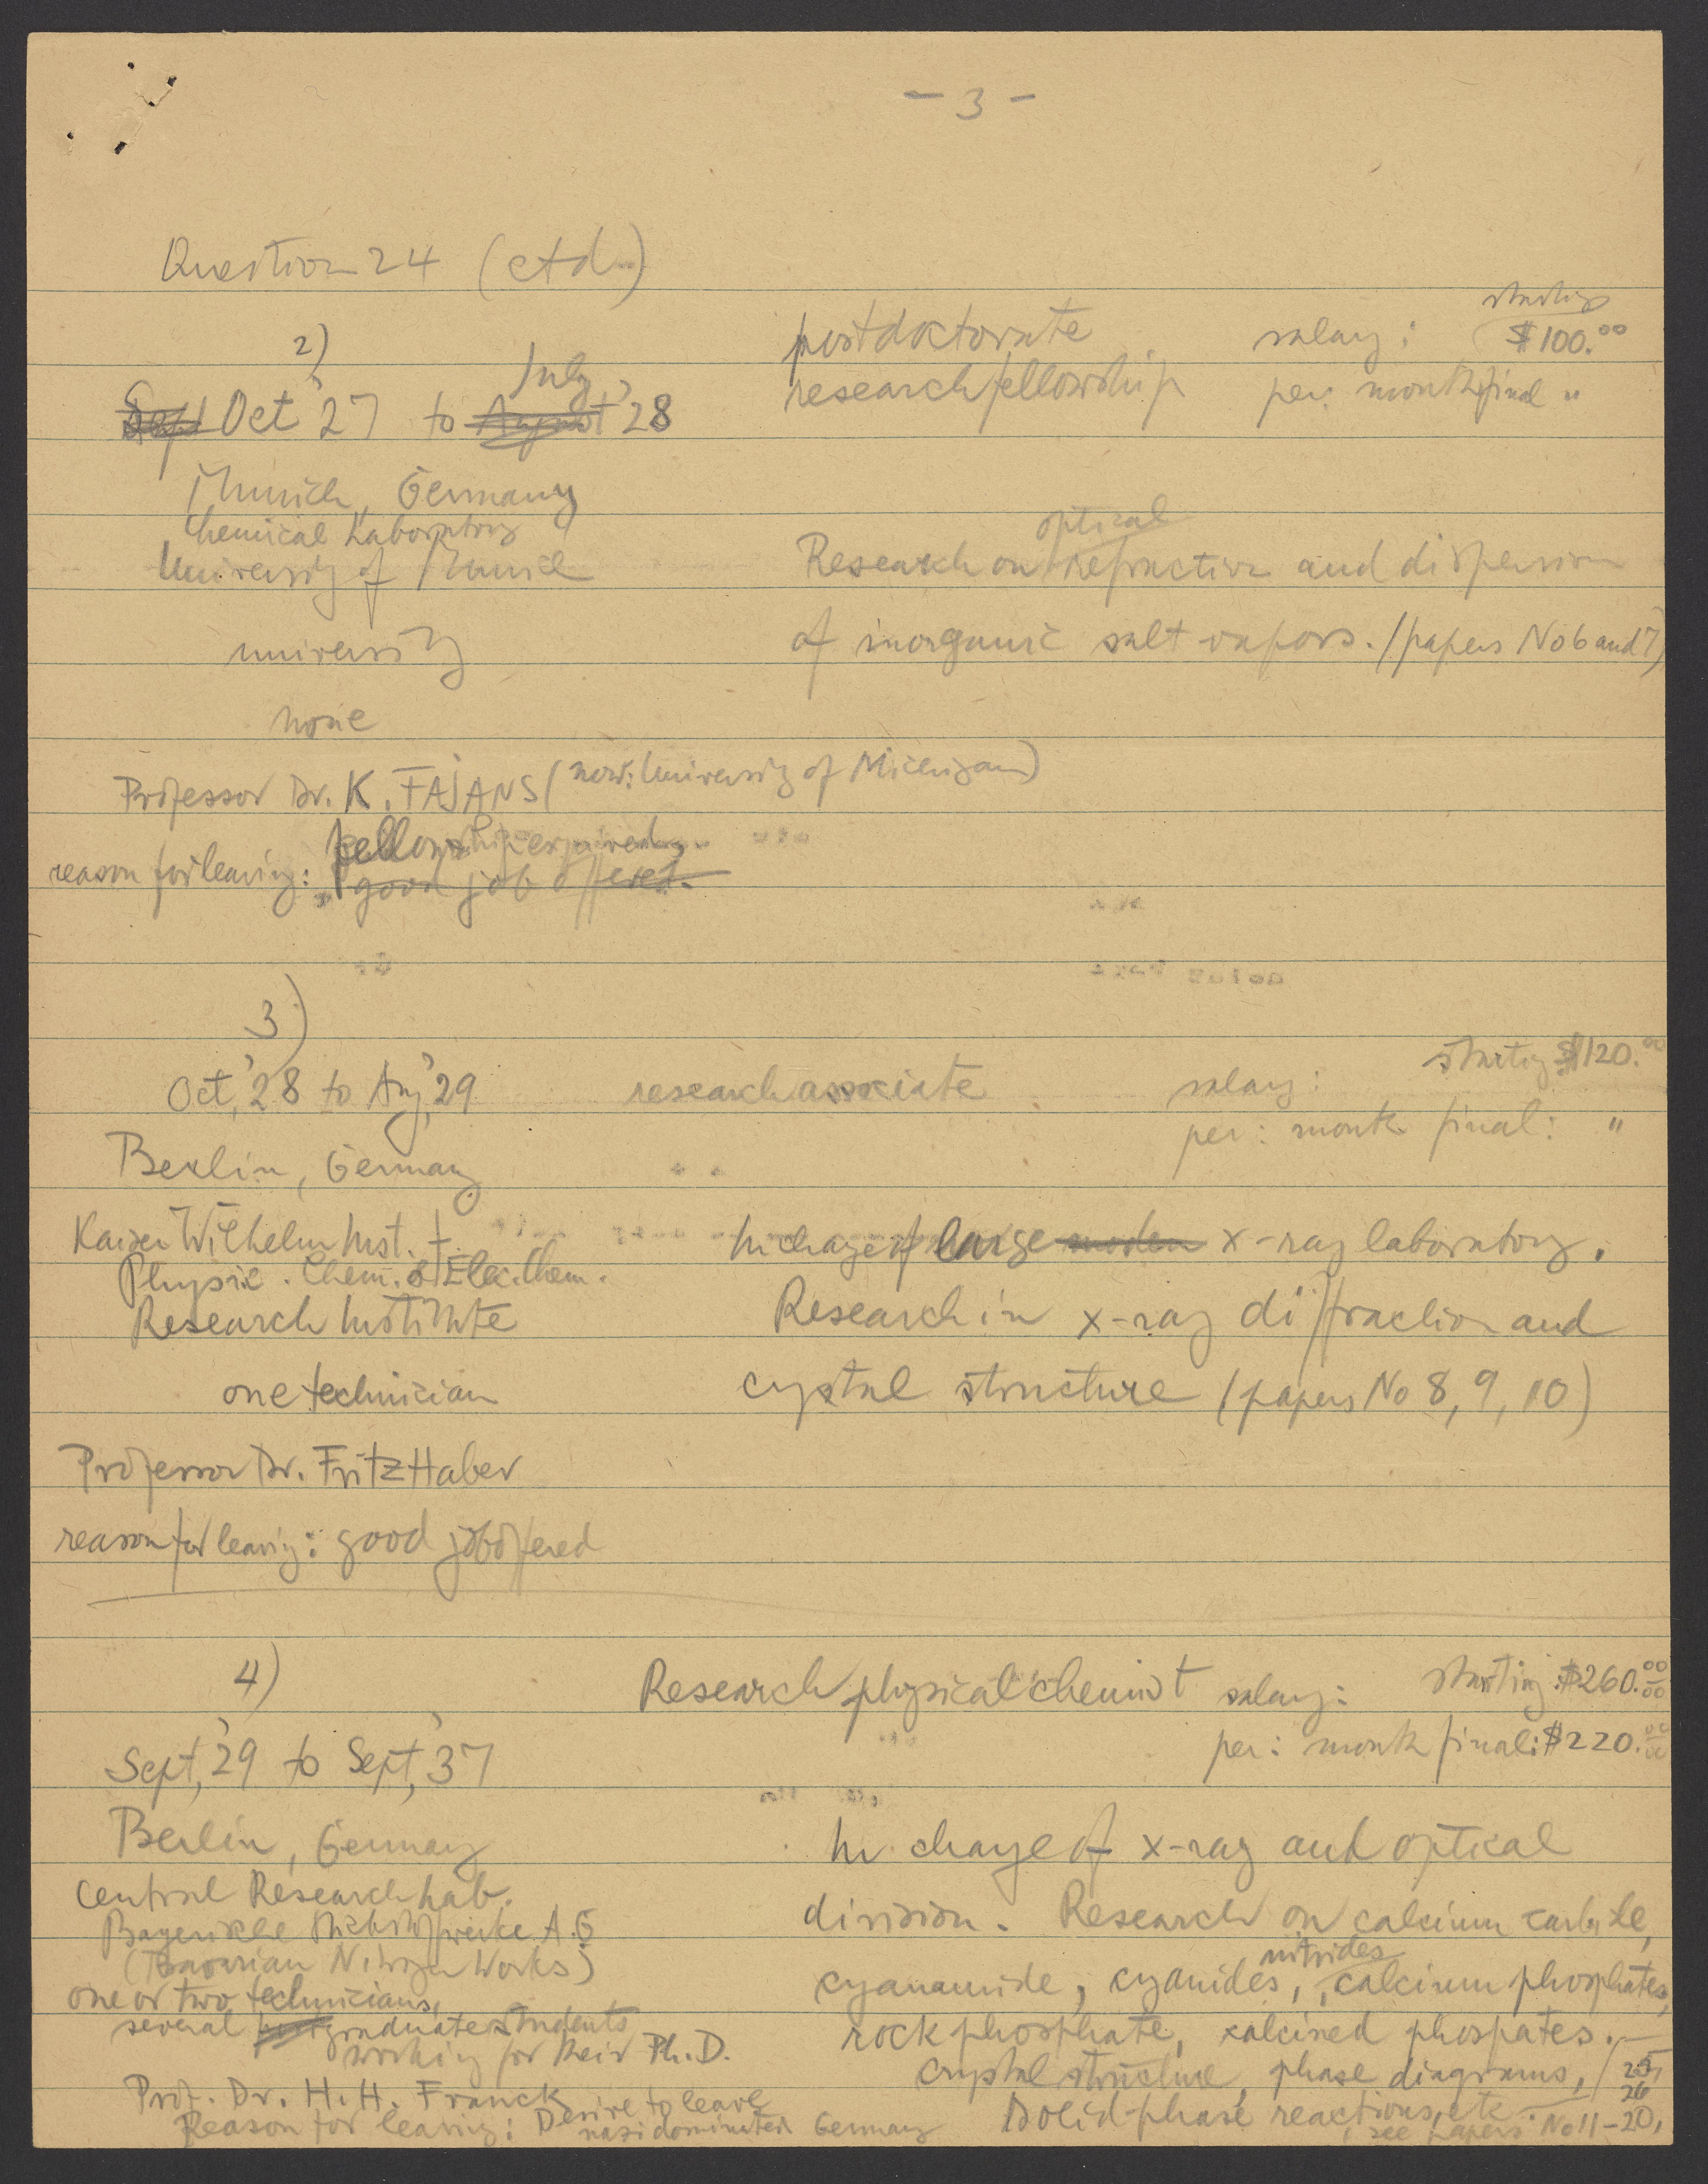 - 3 -
Question 24 (ctd.)
2)
Sept Oct '27 to August July '28
postdoctorate
research fellowship
salary: starting $100.00
per: month final "
Munich, Germany
Chemical Laboratory
University of Munich
optical
Research on refraction and dispersion
university
of inorganic salt vapors. (papers No 6 and 7)
none
Professor Dr. K. FAJANS (now: University of Michigan)
fellowship expired,
reason for leaving: good job offered.
3)
Oct, '28 to Aug, '29
research associate
salary: starting $120.00
per: month final: "
Berlin, Germany
Kaiser Wilhelm Inst. f.
Physic. Chem. & Elec. Chem.
In charge of large modern x-ray laboratory.
Research Institute
Research in x-ray diffraction and
one technician
crystal structure (papers No 8, 9, 10)
Professor Dr. Fritz Haber
reason for leaving: good job offered
4)
Research physical chemist
salary: starting: $260.00
per: month final: $220.00
Sept, '29 to Sept, '37
Berlin, Germany
In charge of x-ray and optical
Central Research Lab.
Bayerische Stickstoffwerke A.G
(Bavarian Nitrogen Works)
division. Research on calcium carbide,
nitrides
cyanamide, cyanides, calcium phosphates,
one or two technicians,
several graduate students
working for their Ph.D.
rock phosphate, calcined phospates. —
crystal structure, phase diagrams,
Prof. Dr. H. H. Franck
Reason for leaving: Desire to leave
nazi dominated Germany
solid phase reactions, etc
see papers No 11-20,
25,
26